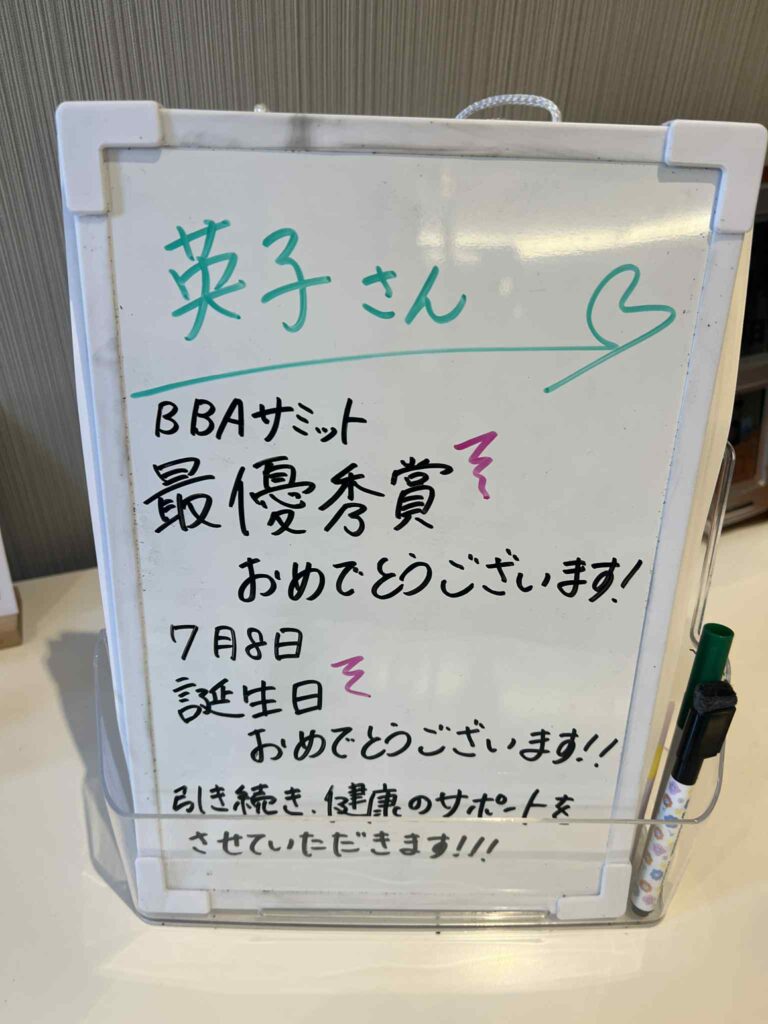 英子さん
BBAサミット
最優秀賞
おめでとうございます!
7月8日
誕生日
おめでとうございます!!
引き続き、健康のサポートを
させていただきます!!!